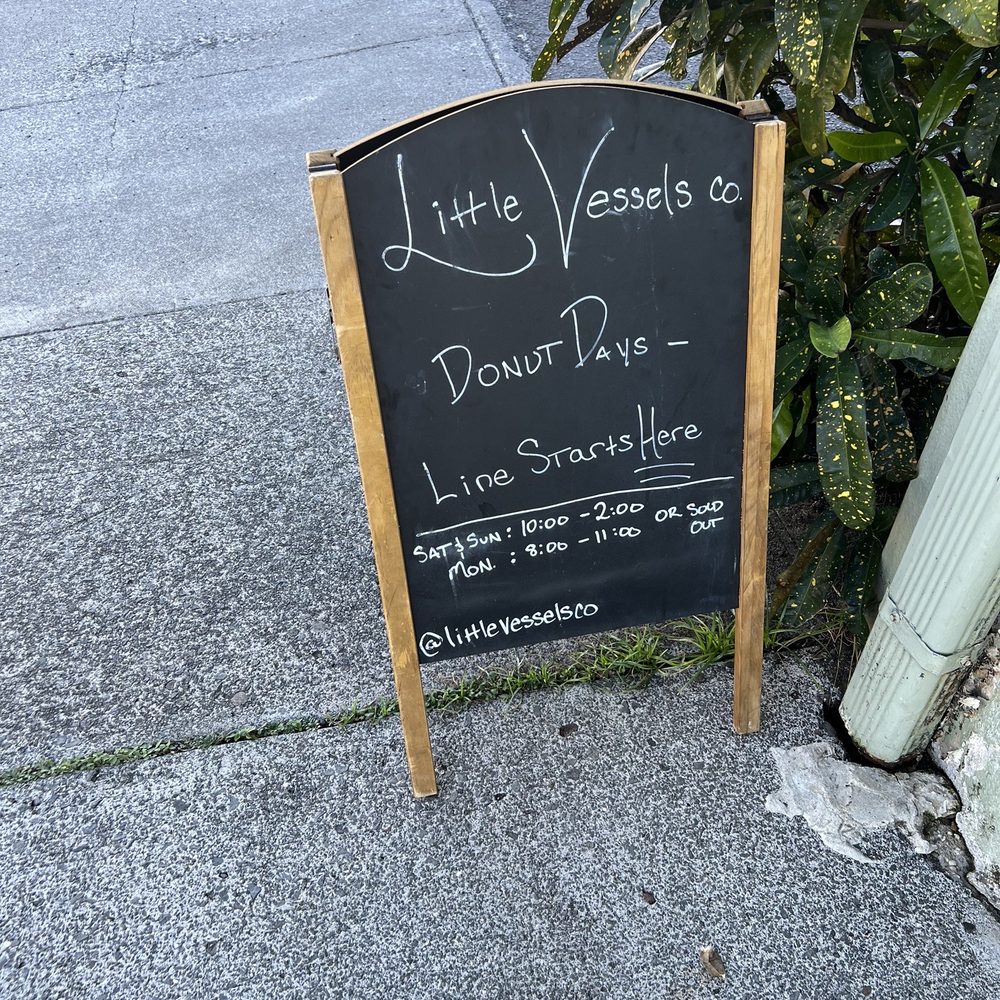 Little Vessels co.
DONUT DAYS -
Line Starts Here
SAT & SUN : 10:00 - 2:00 OR SOLD OUT
MON. : 8:00 - 11:00
@littlevesselsco